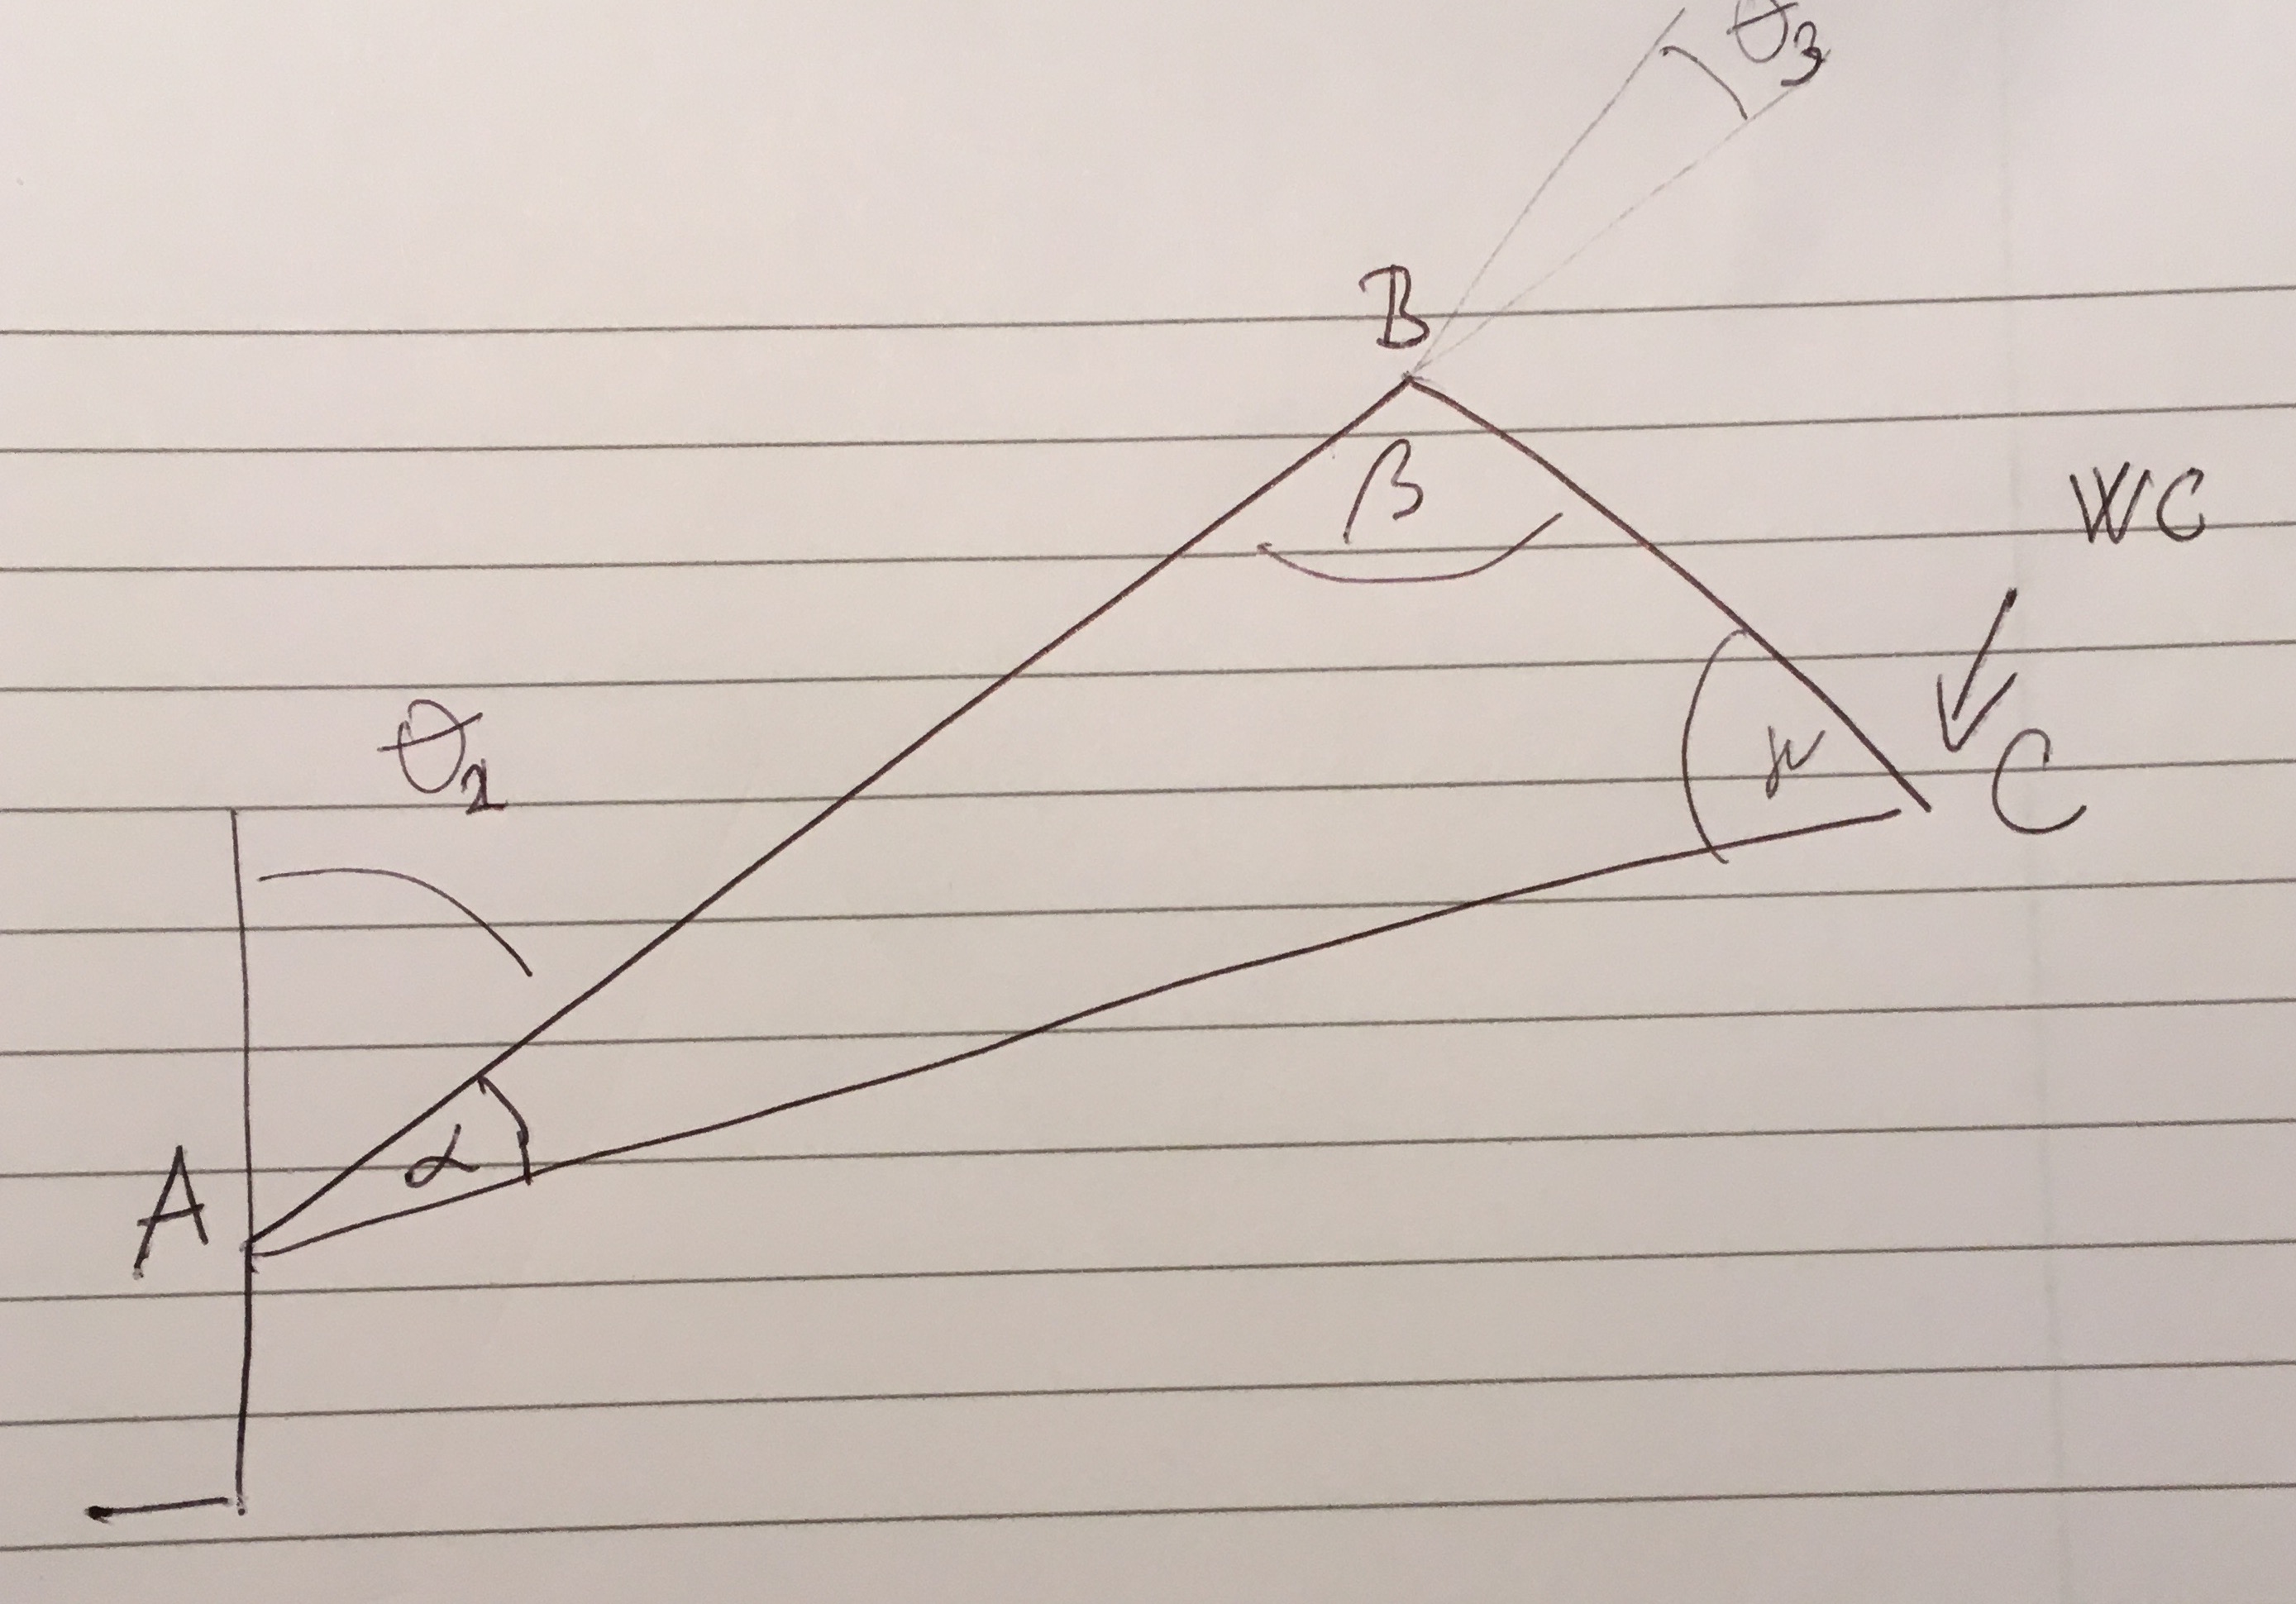 θ3
B
β
WC
θ2
γ
C
α
A